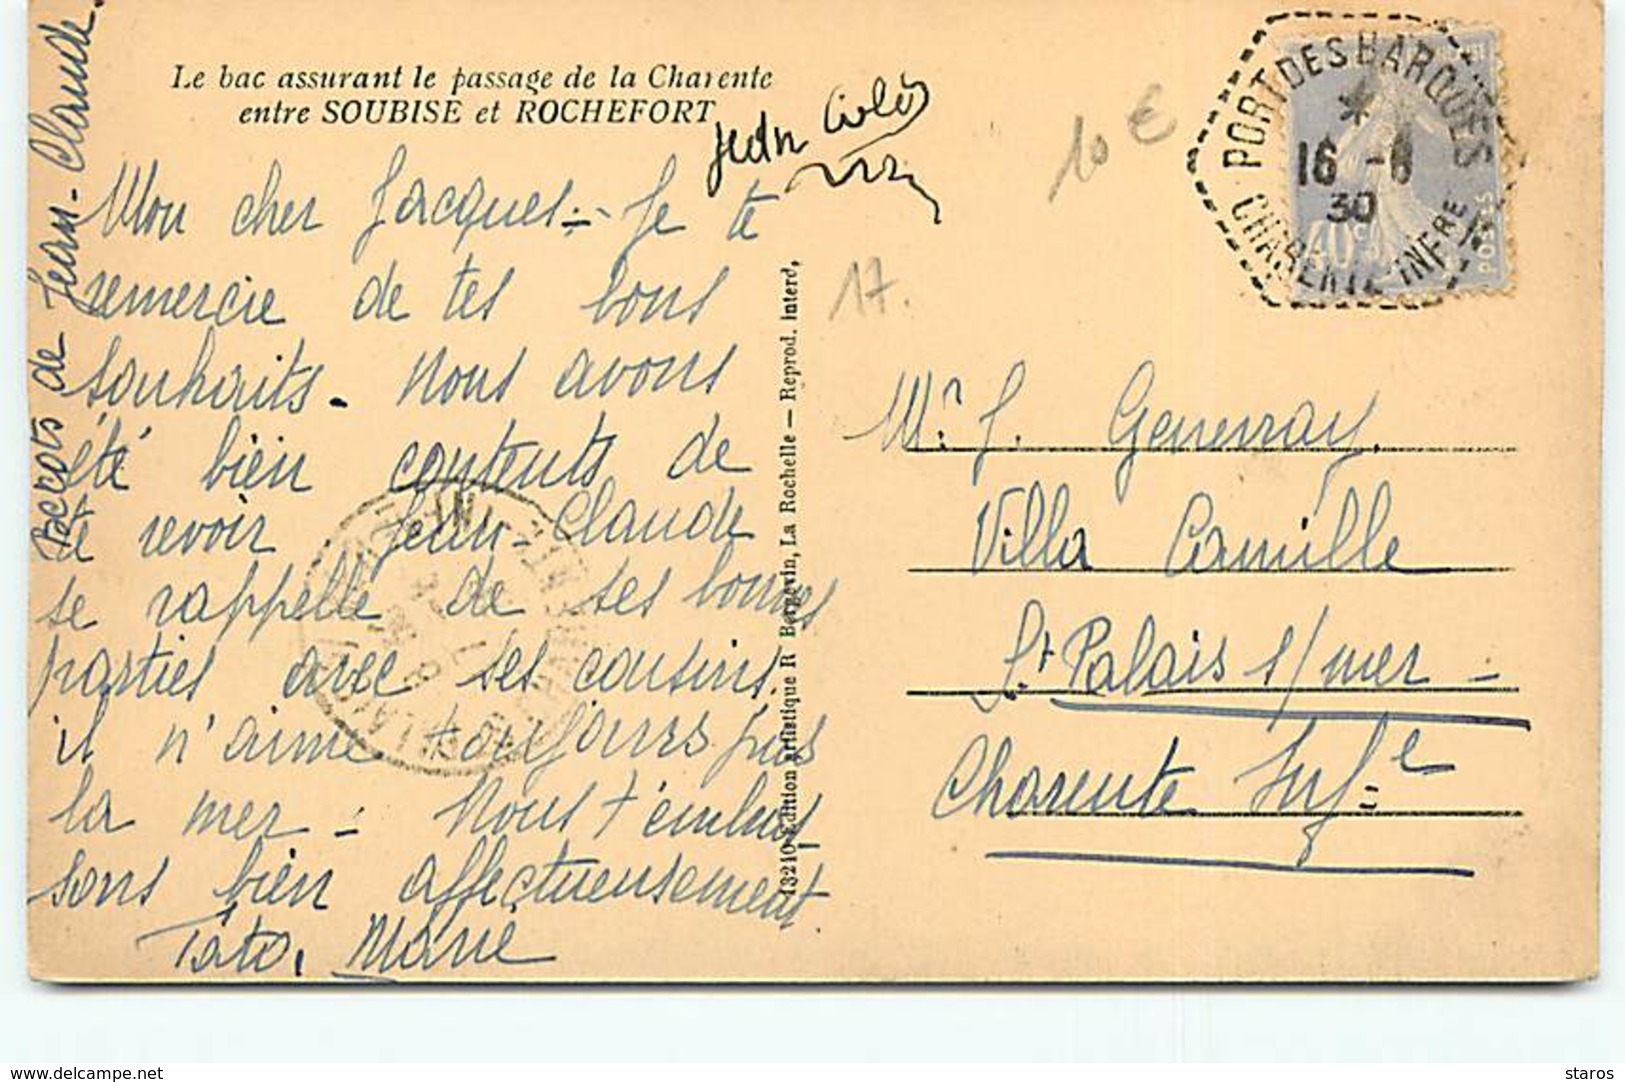 Le bac assurant le passage de la Charente
entre SOUBISE et ROCHEFORT
Jean
10 €
17.
PORT DES BARQUES
*
16 -8
30
CHARENTE INFRE
40c
POSTES
Mon cher Jacques :- Je te
remercie de tes bons
souhaits. Nous avons
été bien contents de
te revoir Jean-Claude
se rappelle de ses bonnes
parties avec ses cousins,
il n'aime toujours pas
la mer - Nous t'embras
sons bien affectueusement.
Tato, Marie
Bécots de Jean-Claude.
13210 Edition artistique R Bergevin, La Rochelle — Reprod. interd,
Mr. J. Genevray.
Villa Camille
St Palais s/mer -
Charente Infre
delcampe.net
staros